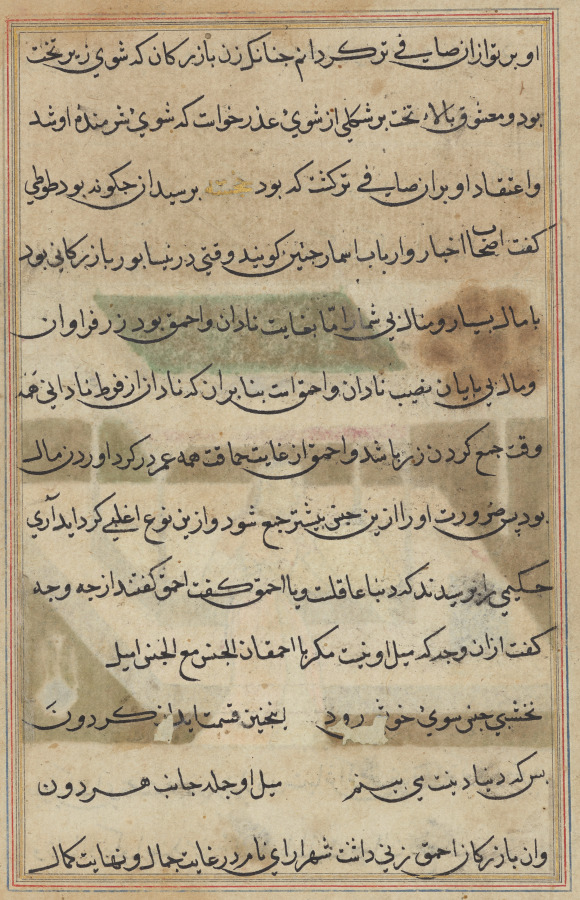 او بر تو ازان صافی تر کردانم جنانک زن بازرکان که شوی زیر تخت
بود و معشوق بالاء تخت بر شکلی از شوی عذر خواست که شوی شرمندهٔ او شد
و اعتقاد او بران صافی تر کشت که بود برسید ان جکونه بود طوطی
کفت اصحاب اخبار و ارباب اسمار جنین کویند وقتی در نیسابور بازرکانی بود
با مال بسیار و منال بی شمار اما بغایت نادان و احمق بود زر فراوان
و مال بی بایان نصیب نادان و احمق است بنا بران که نادان از فرط نادانی همه
وقت جمع کردن زر باشد و احمق از غایت حماقت همه عمر در کرد اوردن مال
بود بس ضرورت او را ازین جنس بیشتر جمع شود و ازین نوع اغلبی کرد اید آری
حکیمی را برسیدند که دنیا عاقلست و یا احمق کفت احمق کفتند از جه وجه
کفت ازان وجه که میل او نیست مکر با احمقان الجنس مع الجنس امیل
نخشبی جنس سوی خوش رود اینجنین قسمت اید از کردون
بس که دنیا دنیست می بینم میل او جمله جانب هر دون
و ان بازرکان احمق زنی داشت شهرارای نام در غایت جمال و نهایت کمال